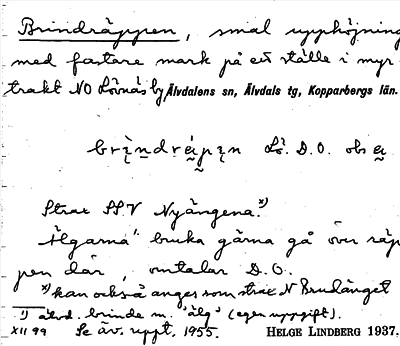 Brindräppen, smal upphöjning
med fastare mark på ett ställe i myr-
trakt NO Lövnäs by, Älvdalens sn, Älvdals tg, Kopparbergs län.
Lö. D.O. obs
Strax SSV Nyängena. x)
Älgarna 1) bruka gärna gå över räp-
pen där, omtalar D.O.
x) kan också anges som strax N Brudänget
1) älvd. brinde m. 'älg' (egen uppgift).
XII 99 Se äv. uppt. 1955. HELGE LINDBERG 1937.